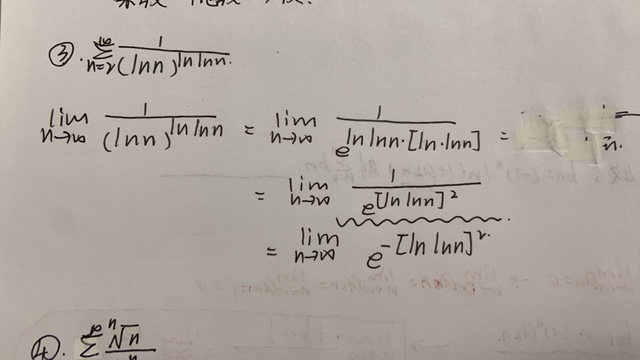 ③. \sum_{n=2}^{\infty} \frac{1}{(\ln n)^{\ln \ln n}}.
\lim_{n→∞} \frac{1}{(\ln n)^{\ln \ln n}} = \lim_{n→∞} \frac{1}{e^{\ln \ln n·[\ln·\ln n]}} =
= \lim_{n→∞} \frac{1}{e^{[\ln \ln n]^2}}
= \lim_{n→∞} e^{-[\ln \ln n]^2}.
④. \sum^{∞} \frac{\sqrt[n]{n}}{n}